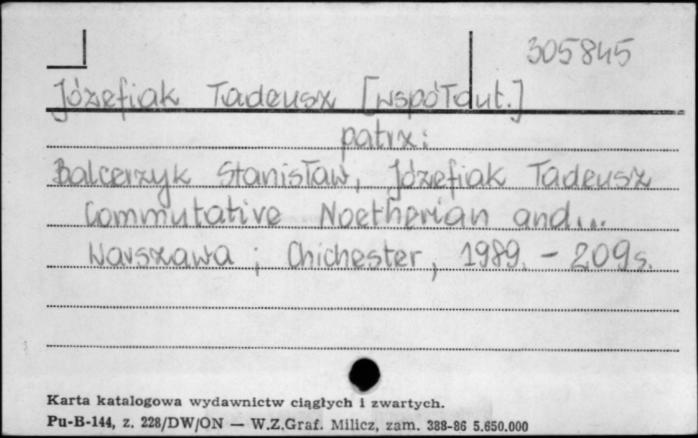 305845
Józefiak Tadeusz [współaut.]
patrz:
Balcerzyk Stanisław, Józefiak Tadeusz
Commutative Noetherian and...
Warszawa ; Chichester, 1989. - 209s.
Karta katalogowa wydawnictw ciągłych i zwartych.
Pu-B-144, z. 228/DW/ON — W.Z.Graf. Milicz, zam. 388-86 5.650.000